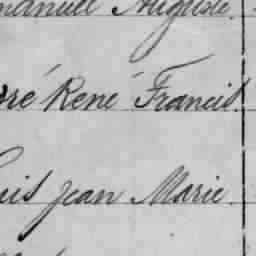 manuel Auguste
dré René Francis
uis Jean Marie